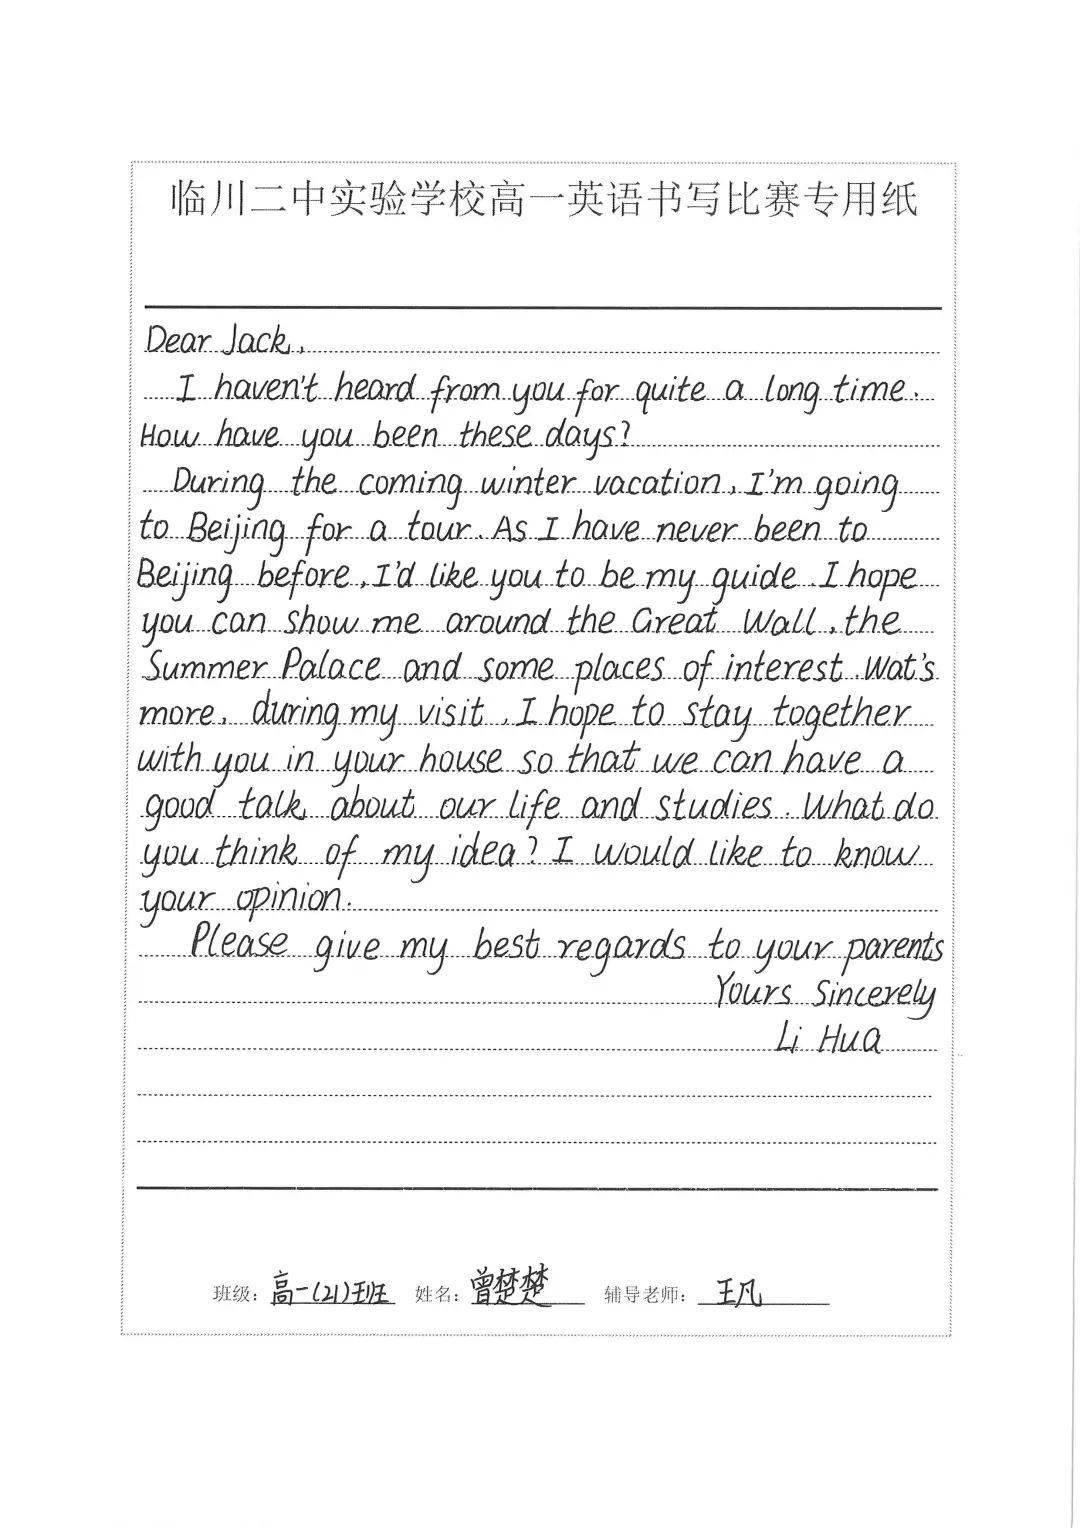 临川二中实验学校高一英语书写比赛专用纸
Dear Jack,
I haven't heard from you for quite a long time.
How have you been these days?
During the coming winter vacation, I'm going
to Beijing for a tour. As I have never been to
Beijing before, I'd like you to be my guide. I hope
you can show me around the Great Wall, the
Summer Palace and some places of interest. Wat's
more, during my visit, I hope to stay together
with you in your house so that we can have a
good talk about our life and studies. What do
you think of my idea? I would like to know
your opinion.
Please give my best regards to your parents
Yours Sincerely
Li Hua
班级: 高一(21)班 姓名: 曾楚楚 辅导老师: 王凡